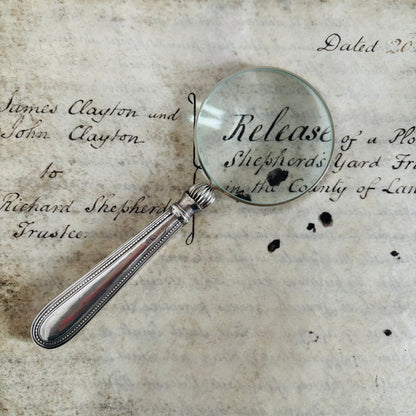 Dated 20
James Clayton and
John Clayton
to
Richard Shepherd
Trustee.
Release of a Plo
Shepherds Yard Fr
in the County of Lan